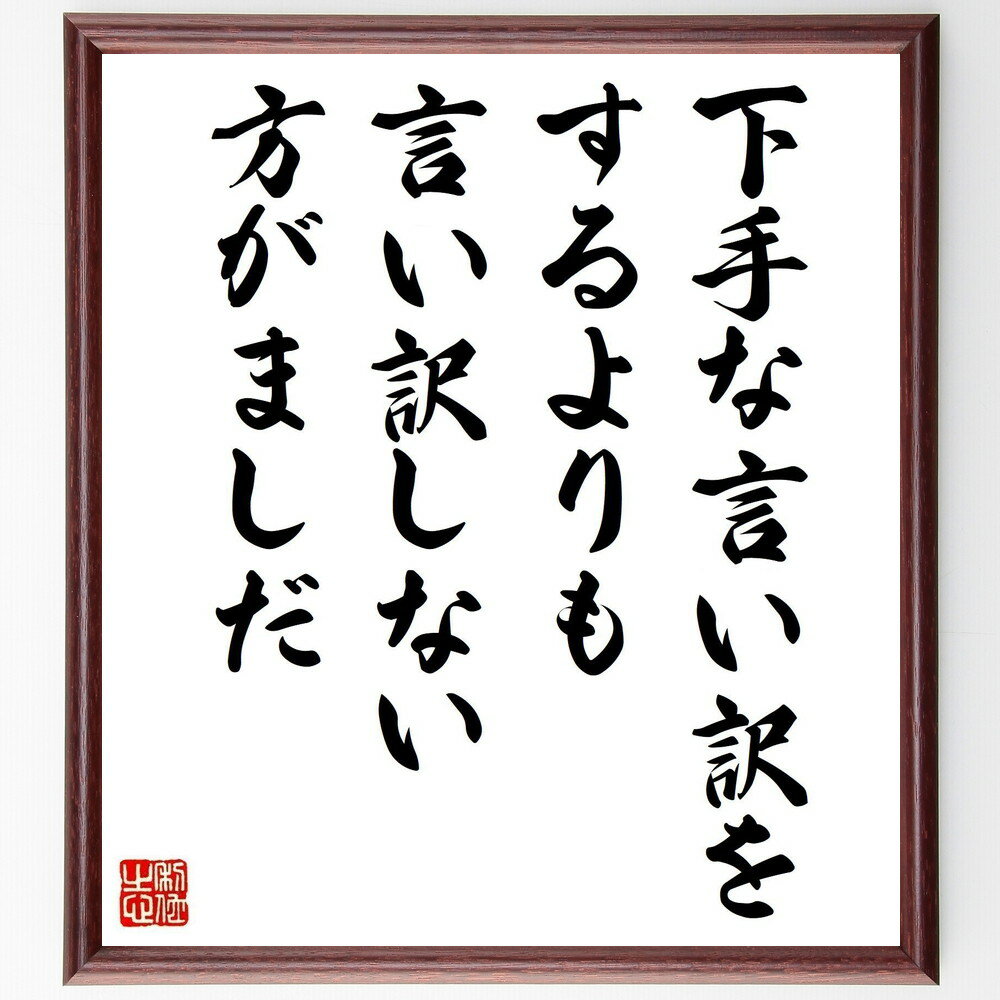 下手な言い訳を
するよりも
言い訳しない
方がましだ